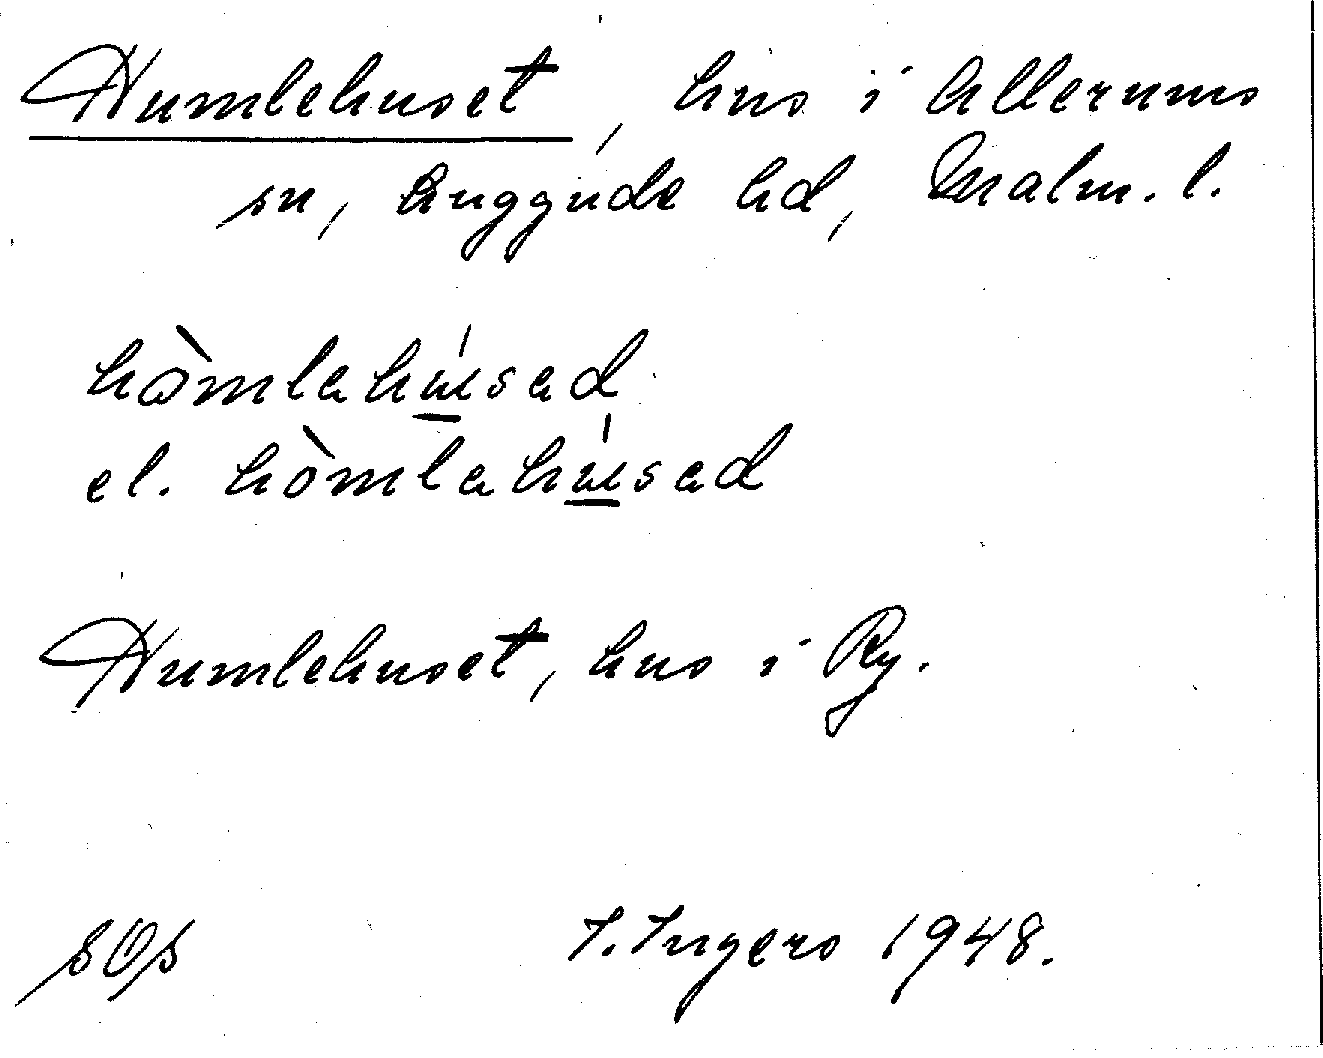 Humlehuset, hus i Allerums
sn, Luggude hd, Malm. l.
hòmlahúsad
el. hòmlahúsad
Humlehuset, hus i Ry.
I. Ingers 1948.